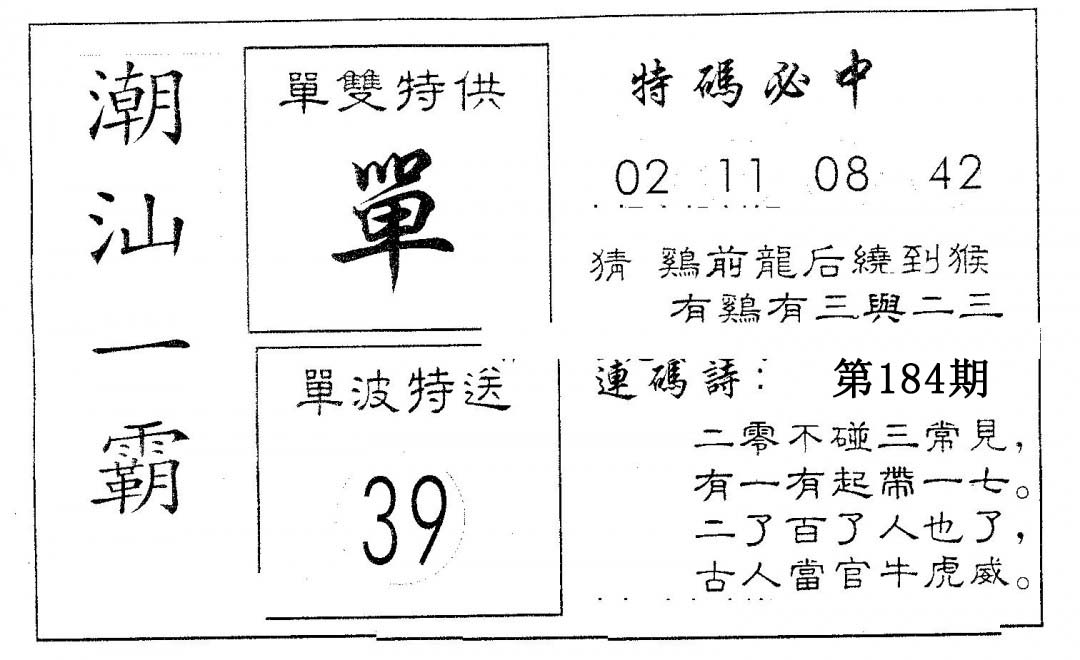 潮汕一霸
單雙特供
單
單波特送
39
特碼必中
02 11 08 42
猜 鷄前龍后繞到猴
有鷄有三與二三
連碼詩： 第184期
二零不碰三常見，
有一有起帶一七。
二了百了人也了，
古人當官牛虎威。